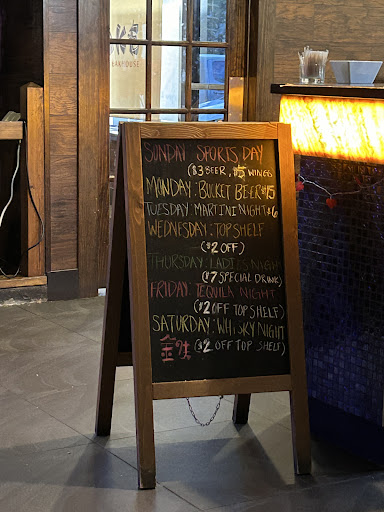 SUNDAY SPORTS DAY
($3 BEER, $5 WINGS
MONDAY: BUCKET BEER $15
TUESDAY MARTINI NIGHT $6
WEDNESDAY: TOP SHELF
($2 OFF)
THURSDAY: LADIES NIGHT
($7 SPECIAL DRINK)
FRIDAY: TEQUILA NIGHT
($2 OFF TOP SHELF)
SATURDAY: WHISKY NIGHT
($2 OFF TOP SHELF)